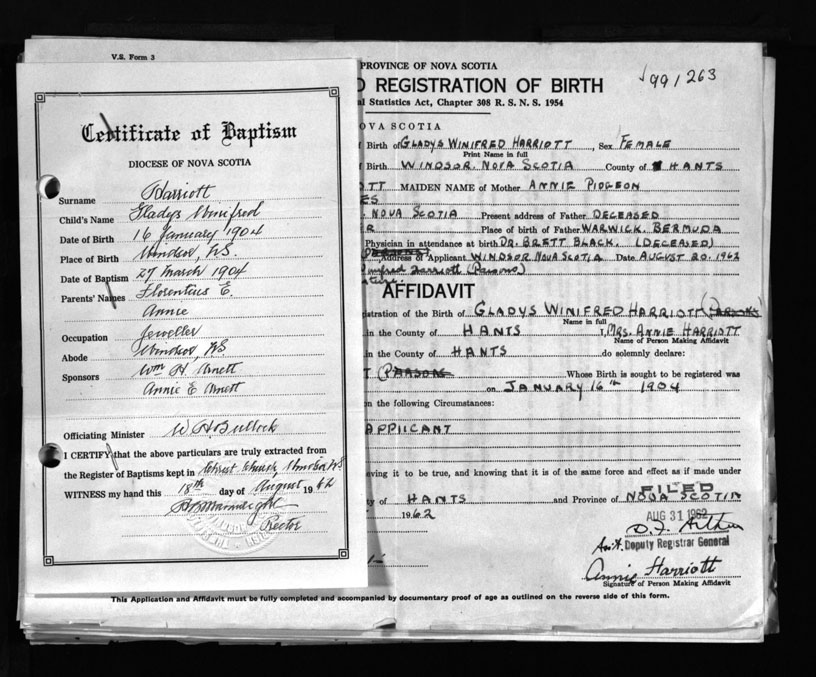 V.S. Form 3
Certificate of Baptism
DIOCESE OF NOVA SCOTIA
Surname Harriott
Child's Name Gladys Winifred
Date of Birth 16 January 1904
Place of Birth Windsor, N.S.
Date of Baptism 27 March 1904
Parents' Names Florentius E.
Annie
Occupation Jeweller
Abode Windsor, N.S.
Sponsors Wm H. Arnett
Annie E Arnett
Officiating Minister W H Bullock
I CERTIFY that the above particulars are truly extracted from
the Register of Baptisms kept in Christ Church, Windsor, N.S
WITNESS my hand this 18th day of August 1962
Rector
PROVINCE OF NOVA SCOTIA
D REGISTRATION OF BIRTH
991263
al Statistics Act, Chapter 308 R. S. N. S. 1954
OVA SCOTIA
f Birth of GLADYS WINIFRED HARRIOTT, Sex FEMALE
Print Name in full
f Birth WINDSOR, NOVA SCOTIA County of HANTS
OTT MAIDEN NAME of Mother ANNIE PIDGEON
ES
, NOVA SCOTIA Present address of Father DECEASED
R Place of birth of Father WARWICK, BERMUDA
Physician in attendance at birth DR. BRETT BLACK. (DECEASED)
Address of Applicant WINDSOR NOVA SCOTIA Date AUGUST 20, 1962
Winifred Harriott (Parsons)
ature.
AFFIDAVIT
istration of the Birth of GLADYS WINIFRED HARRIOTT (PARSONS)
Name in full
in the County of HANTS I, MRS. ANNIE HARRIOTT
Name of Person Making Affidavit
in the County of HANTS do solemnly declare:
T (PARSONS Whose Birth is sought to be registered was
on JANUARY 16th 1904
n the following Circumstances:
APPLICANT
eving it to be true, and knowing that it is of the same force and effect as if made under
ty of HANTS and Province of NOVA SCOTIA
FILED
1962
AUG 31 1962
Deputy Registrar General
Annie Harriott
Signature of Person Making Affidavit
This Application and Affidavit must be fully completed and accompanied by documentary proof of age as outlined on the reverse side of this form.